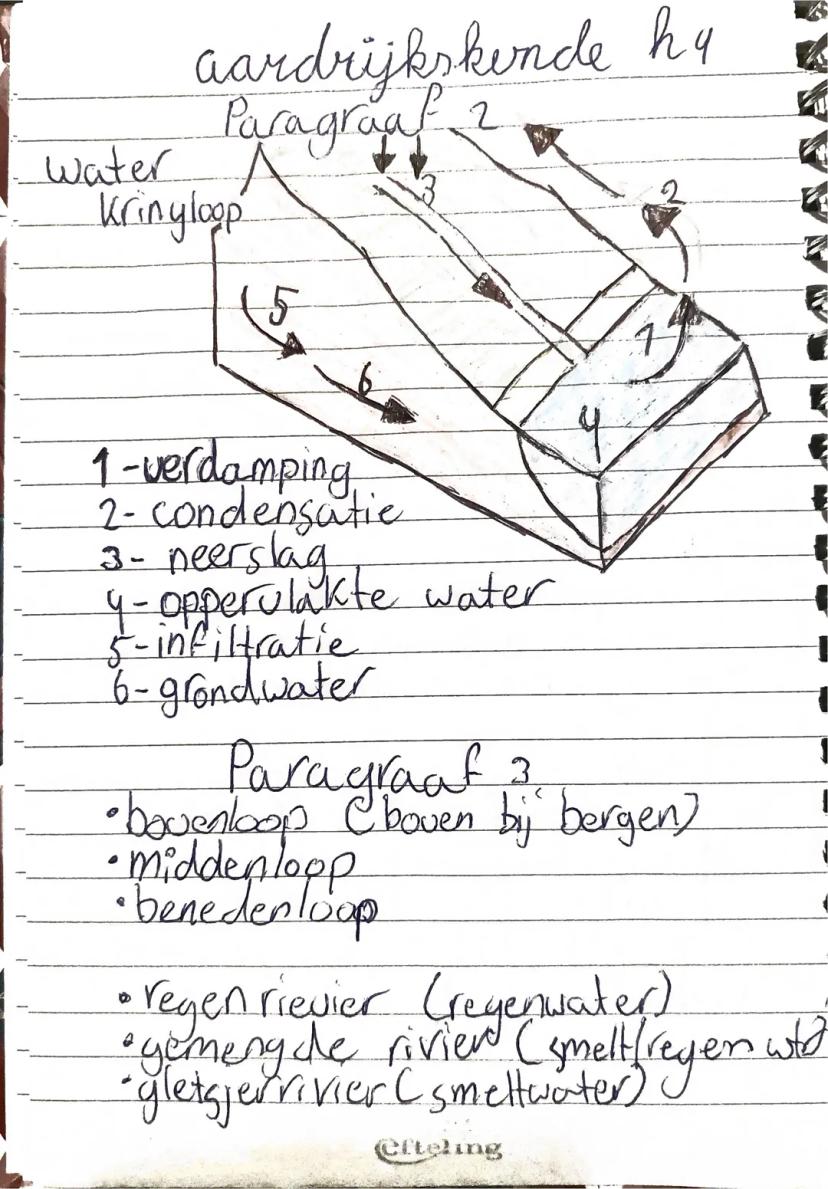 aardrijkskunde h4
Paragraaf 2
water
Kringloop
2
3
5
1
6
4
1-verdamping
2-condensatie
3-neerslag
4-oppervlakte water
5-infiltratie
6-grondwater
Paragraaf 3
•bovenloop (boven bij bergen)
•middenloop
•benedenloop
•regenrievier (regenwater)
•gemengde rivier (smelt/regen wtr)
•gletsjerrivier (smeltwater)
efteling